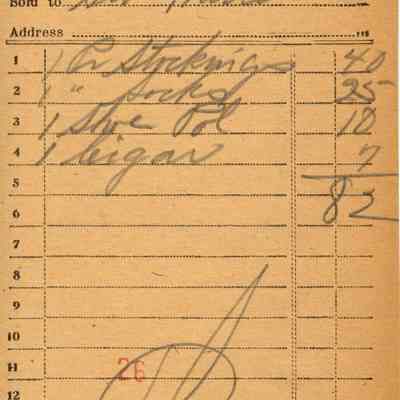 Sold to
Address
1 1 Pr Stockings 40
2 1 " socks 25
3 1 Shoe Pol 10
4 1 Cigar 7
5
6 82
7
8
9
10
11 26
12